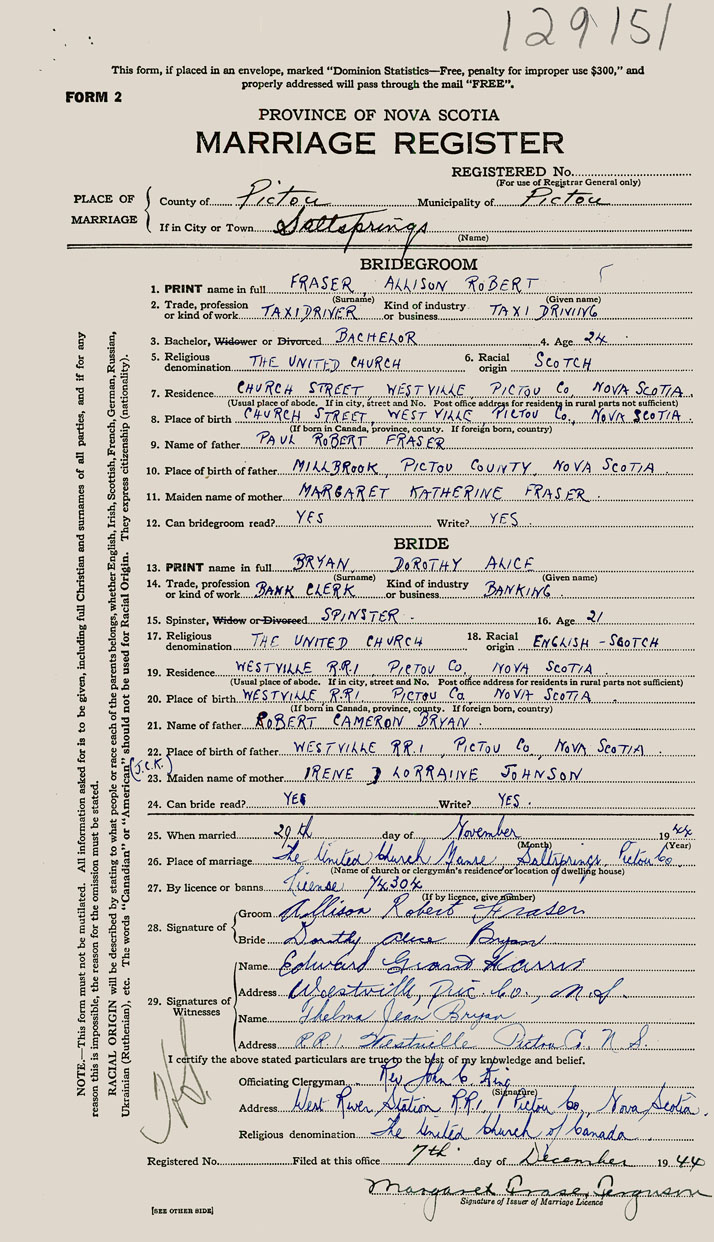 129151
This form, if placed in an envelope, marked "Dominion Statistics—Free, penalty for improper use $300," and
properly addressed will pass through the mail "FREE".
FORM 2
PROVINCE OF NOVA SCOTIA
MARRIAGE REGISTER
REGISTERED No.
(For use of Registrar General only)
PLACE OF MARRIAGE
County of Pictou Municipality of Pictou
If in City or Town Saltsprings
(Name)
BRIDEGROOM
1. PRINT name in full FRASER, ALLISON ROBERT
(Surname) (Given name)
2. Trade, profession or kind of work TAXI DRIVER Kind of industry or business TAXI DRIVING
3. Bachelor, Widower or Divorced BACHELOR 4. Age 24
5. Religious denomination THE UNITED CHURCH 6. Racial origin SCOTCH
7. Residence CHURCH STREET WESTVILLE PICTOU Co, NOVA SCOTIA.
(Usual place of abode. If in city, street and No. Post office address for residents in rural parts not sufficient)
8. Place of birth CHURCH STREET, WESTVILLE PICTOU Co., NOVA SCOTIA.
(If born in Canada, province, county. If foreign born, country)
9. Name of father PAUL ROBERT FRASER
10. Place of birth of father MILLBROOK, PICTOU COUNTY, NOVA SCOTIA.
11. Maiden name of mother MARGARET KATHERINE FRASER.
12. Can bridegroom read? YES Write? YES.
BRIDE
13. PRINT name in full BRYAN, DOROTHY ALICE
(Surname) (Given name)
14. Trade, profession or kind of work BANK CLERK Kind of industry or business BANKING.
15. Spinster, Widow or Divorced SPINSTER 16. Age 21
17. Religious denomination THE UNITED CHURCH 18. Racial origin ENGLISH - SCOTCH
19. Residence WESTVILLE R.R.1, PICTOU Co, NOVA SCOTIA.
(Usual place of abode. If in city, street and No. Post office address for residents in rural parts not sufficient)
20. Place of birth WESTVILLE, R.R.1, PICTOU Co NOVA SCOTIA
(If born in Canada, province, county. If foreign born, country)
21. Name of father ROBERT CAMERON BRYAN.
22. Place of birth of father WESTVILLE RR.1, PICTOU Co, NOVA SCOTIA.
(J.C.K.)
23. Maiden name of mother IRENE LORRAINE JOHNSON
24. Can bride read? YES Write? YES.
25. When married 29th day of November 1944
(Month) (Year)
26. Place of marriage The United Church Manse Saltsprings, Pictou Co
(Name of church or clergyman's residence or location of dwelling house)
27. By licence or banns License
(If by licence, give number)
28. Signature of
Groom Allison Robert Fraser
Bride Dorothy Alice Bryan
29. Signatures of Witnesses
Name Edward Grant Harris
Address Westville, Pic. Co., N.S.
Name Thelma Jean Bryan
Address R.R.1 Westville Pictou Co. N.S.
I certify the above stated particulars are true to the best of my knowledge and belief.
Officiating Clergyman Rev John C King
(Signature)
Address West River Station R.R.1, Pictou Co., Nova Scotia.
Religious denomination The United Church of Canada
Registered No. Filed at this office 7th day of December 1944
Margaret Ferguson
Signature of Issuer of Marriage Licence
[SEE OTHER SIDE]
NOTE.—This form must not be mutilated. All information asked for is to be given, including full Christian and surnames of all parties, and if for any
reason this is impossible, the reason for the omission must be stated.
RACIAL ORIGIN will be described by stating to what people or race each of the parents belongs, whether English, Irish, Scottish, French, German, Russian,
Ukrainian (Ruthenian), etc. The words "Canadian" or "American" should not be used for Racial Origin. They express citizenship (nationality).